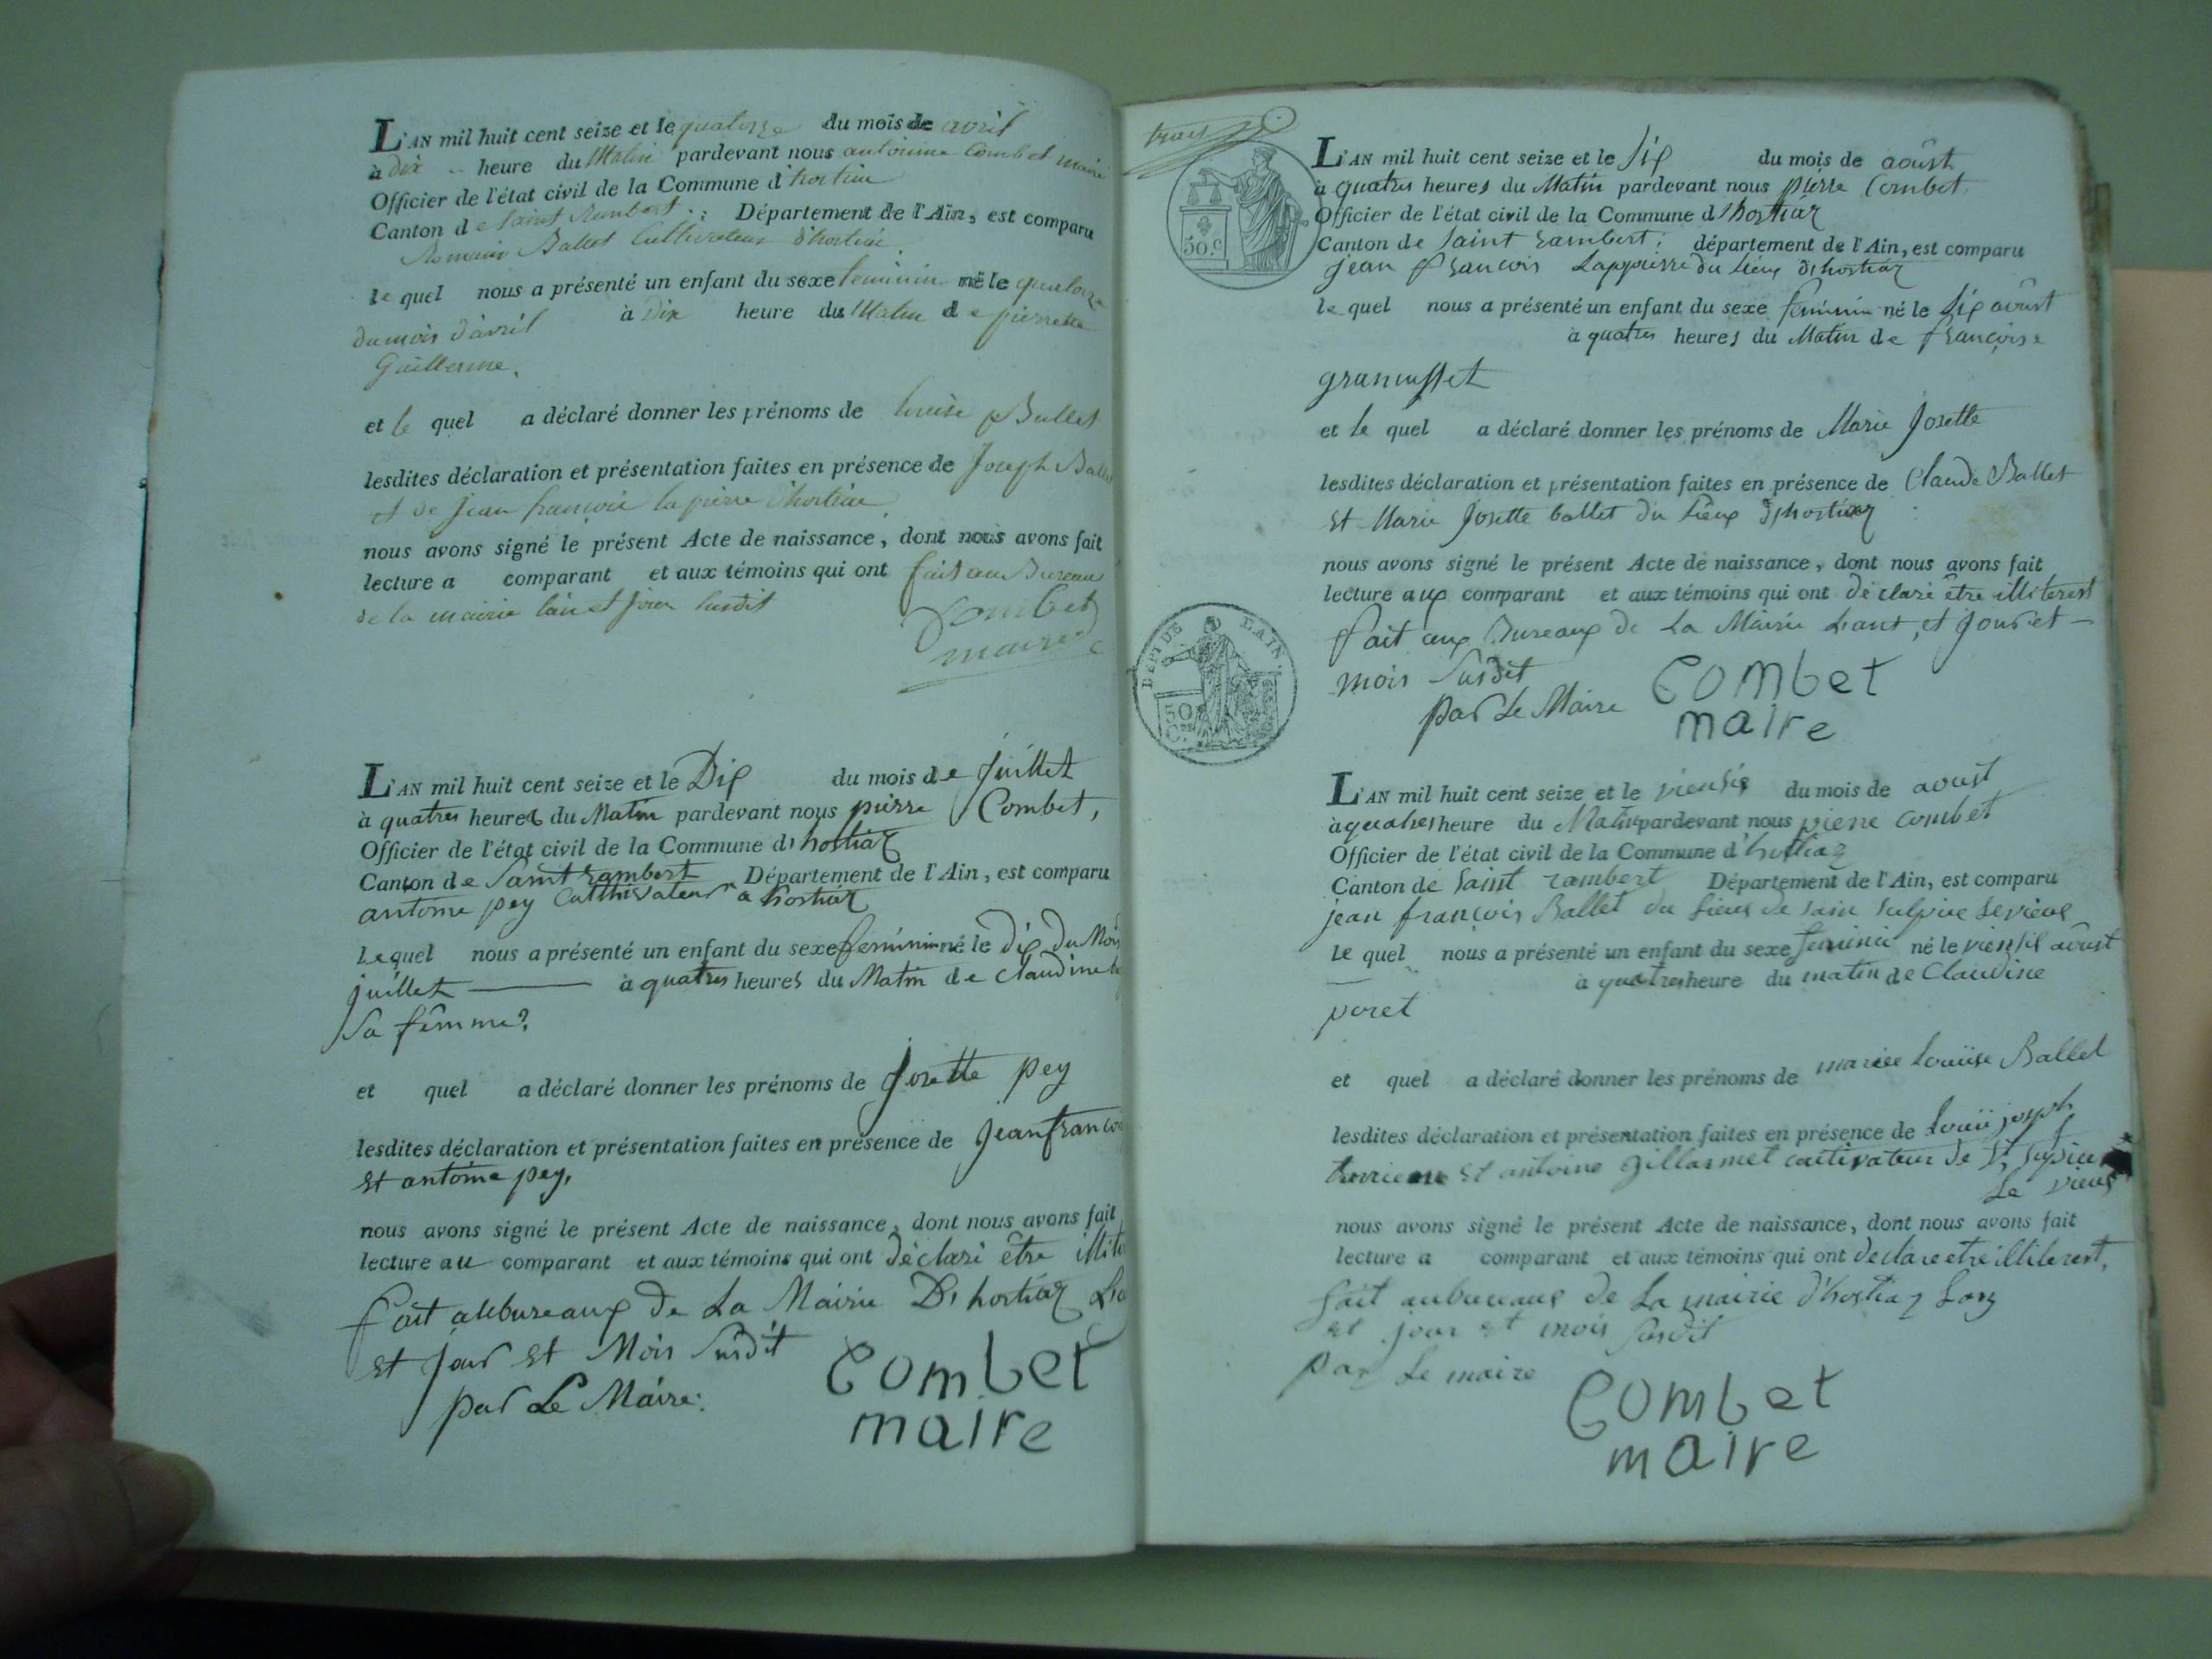 L'AN mil huit cent seize et le quatorze du mois de avril
à dix heure du Matin pardevant nous antoinne Combet maire
Officier de l'état civil de la Commune d'hostiau
Canton de saint Rambert : Département de l'Ain, est comparu
Romain Ballet Cultivateur d'hostiau
le quel nous a présenté un enfant du sexe feminin né le quatorze
du mois d'avril à dix heure du Matin de pierrette
Guillerme.
et le quel a déclaré donner les prénoms de louise Ballet
lesdites déclaration et présentation faites en présence de Joseph Ballet
et de jean françois lapierre d'hostiau
nous avons signé le présent Acte de naissance, dont nous avons fait
lecture a comparant et aux témoins qui ont fait au Bureau
de la mairie lan et jour susdit
Combet
maire
L'AN mil huit cent seize et le Dix du mois de juillet
à quatres heures du Matin pardevant nous pierre Combet,
Officier de l'état civil de la Commune d'hostiaz
Canton de Saint rambert Département de l'Ain, est comparu
antoine pey Cultivateur a hostiaz
Le quel nous a présenté un enfant du sexe feminin né le dix du Mois
juillet à quatres heures du Matin de Claudine
Sa femme
et quel a déclaré donner les prénoms de Josette pey
lesdites déclaration et présentation faites en présence de jean
et antoine pey,
nous avons signé le présent Acte de naissance, dont nous avons fait
lecture au comparant et aux témoins qui ont déclaré être
fait au bureaux de La Mairie D'hostiaz
et jour et Mois susdit
par Le Maire:
Combet
maire
trois
50 c.
L'AN mil huit cent seize et le six du mois de aoûst
à quatres heures du Matin pardevant nous pierre Combet
Officier de l'état civil de la Commune d'hostiaz
Canton de saint rambert : département de l'Ain, est comparu
jean françois Lappierre du lieux d'hostiaz
le quel nous a présenté un enfant du sexe feminin né le six aoûst
à quatres heures du Matin de françoise
et le quel a déclaré donner les prénoms de Marie Josette
lesdites déclaration et présentation faites en présence de Claude Ballet
et Marie Josette ballet du lieux d'hostiaz
nous avons signé le présent Acte de naissance, dont nous avons fait
lecture aux comparant et aux témoins qui ont déclaré être illiterest
fait aux Bureaux de La Mairie Lant, et jour et
mois susdit
par Le Maire
Combet
maire
DÉPT DE L'AIN.
50
L'AN mil huit cent seize et le viensix du mois de aoust
à quatres heure du Matin pardevant nous pierre combet
Officier de l'état civil de la Commune d'hostiaz
Canton de saint rambert Département de l'Ain, est comparu
jean françois Ballet du lieux de sain sulpice le vieux
Le quel nous a présenté un enfant du sexe feminin né le viensix aoûst
à quatres heure du matin de Claudine
poret
et quel a déclaré donner les prénoms de mariee Louiise Ballet
lesdites déclaration et présentation faites en présence de Louii joseph
et antoine gillarmet cultivateur de St
Le vieux
nous avons signé le présent Acte de naissance, dont nous avons fait
lecture a comparant et aux témoins qui ont declare etre illiterest,
fait au bureaux de La mairie d'hostiaz Lan
et jour et mois susdit
par Le maire
Combet
maire